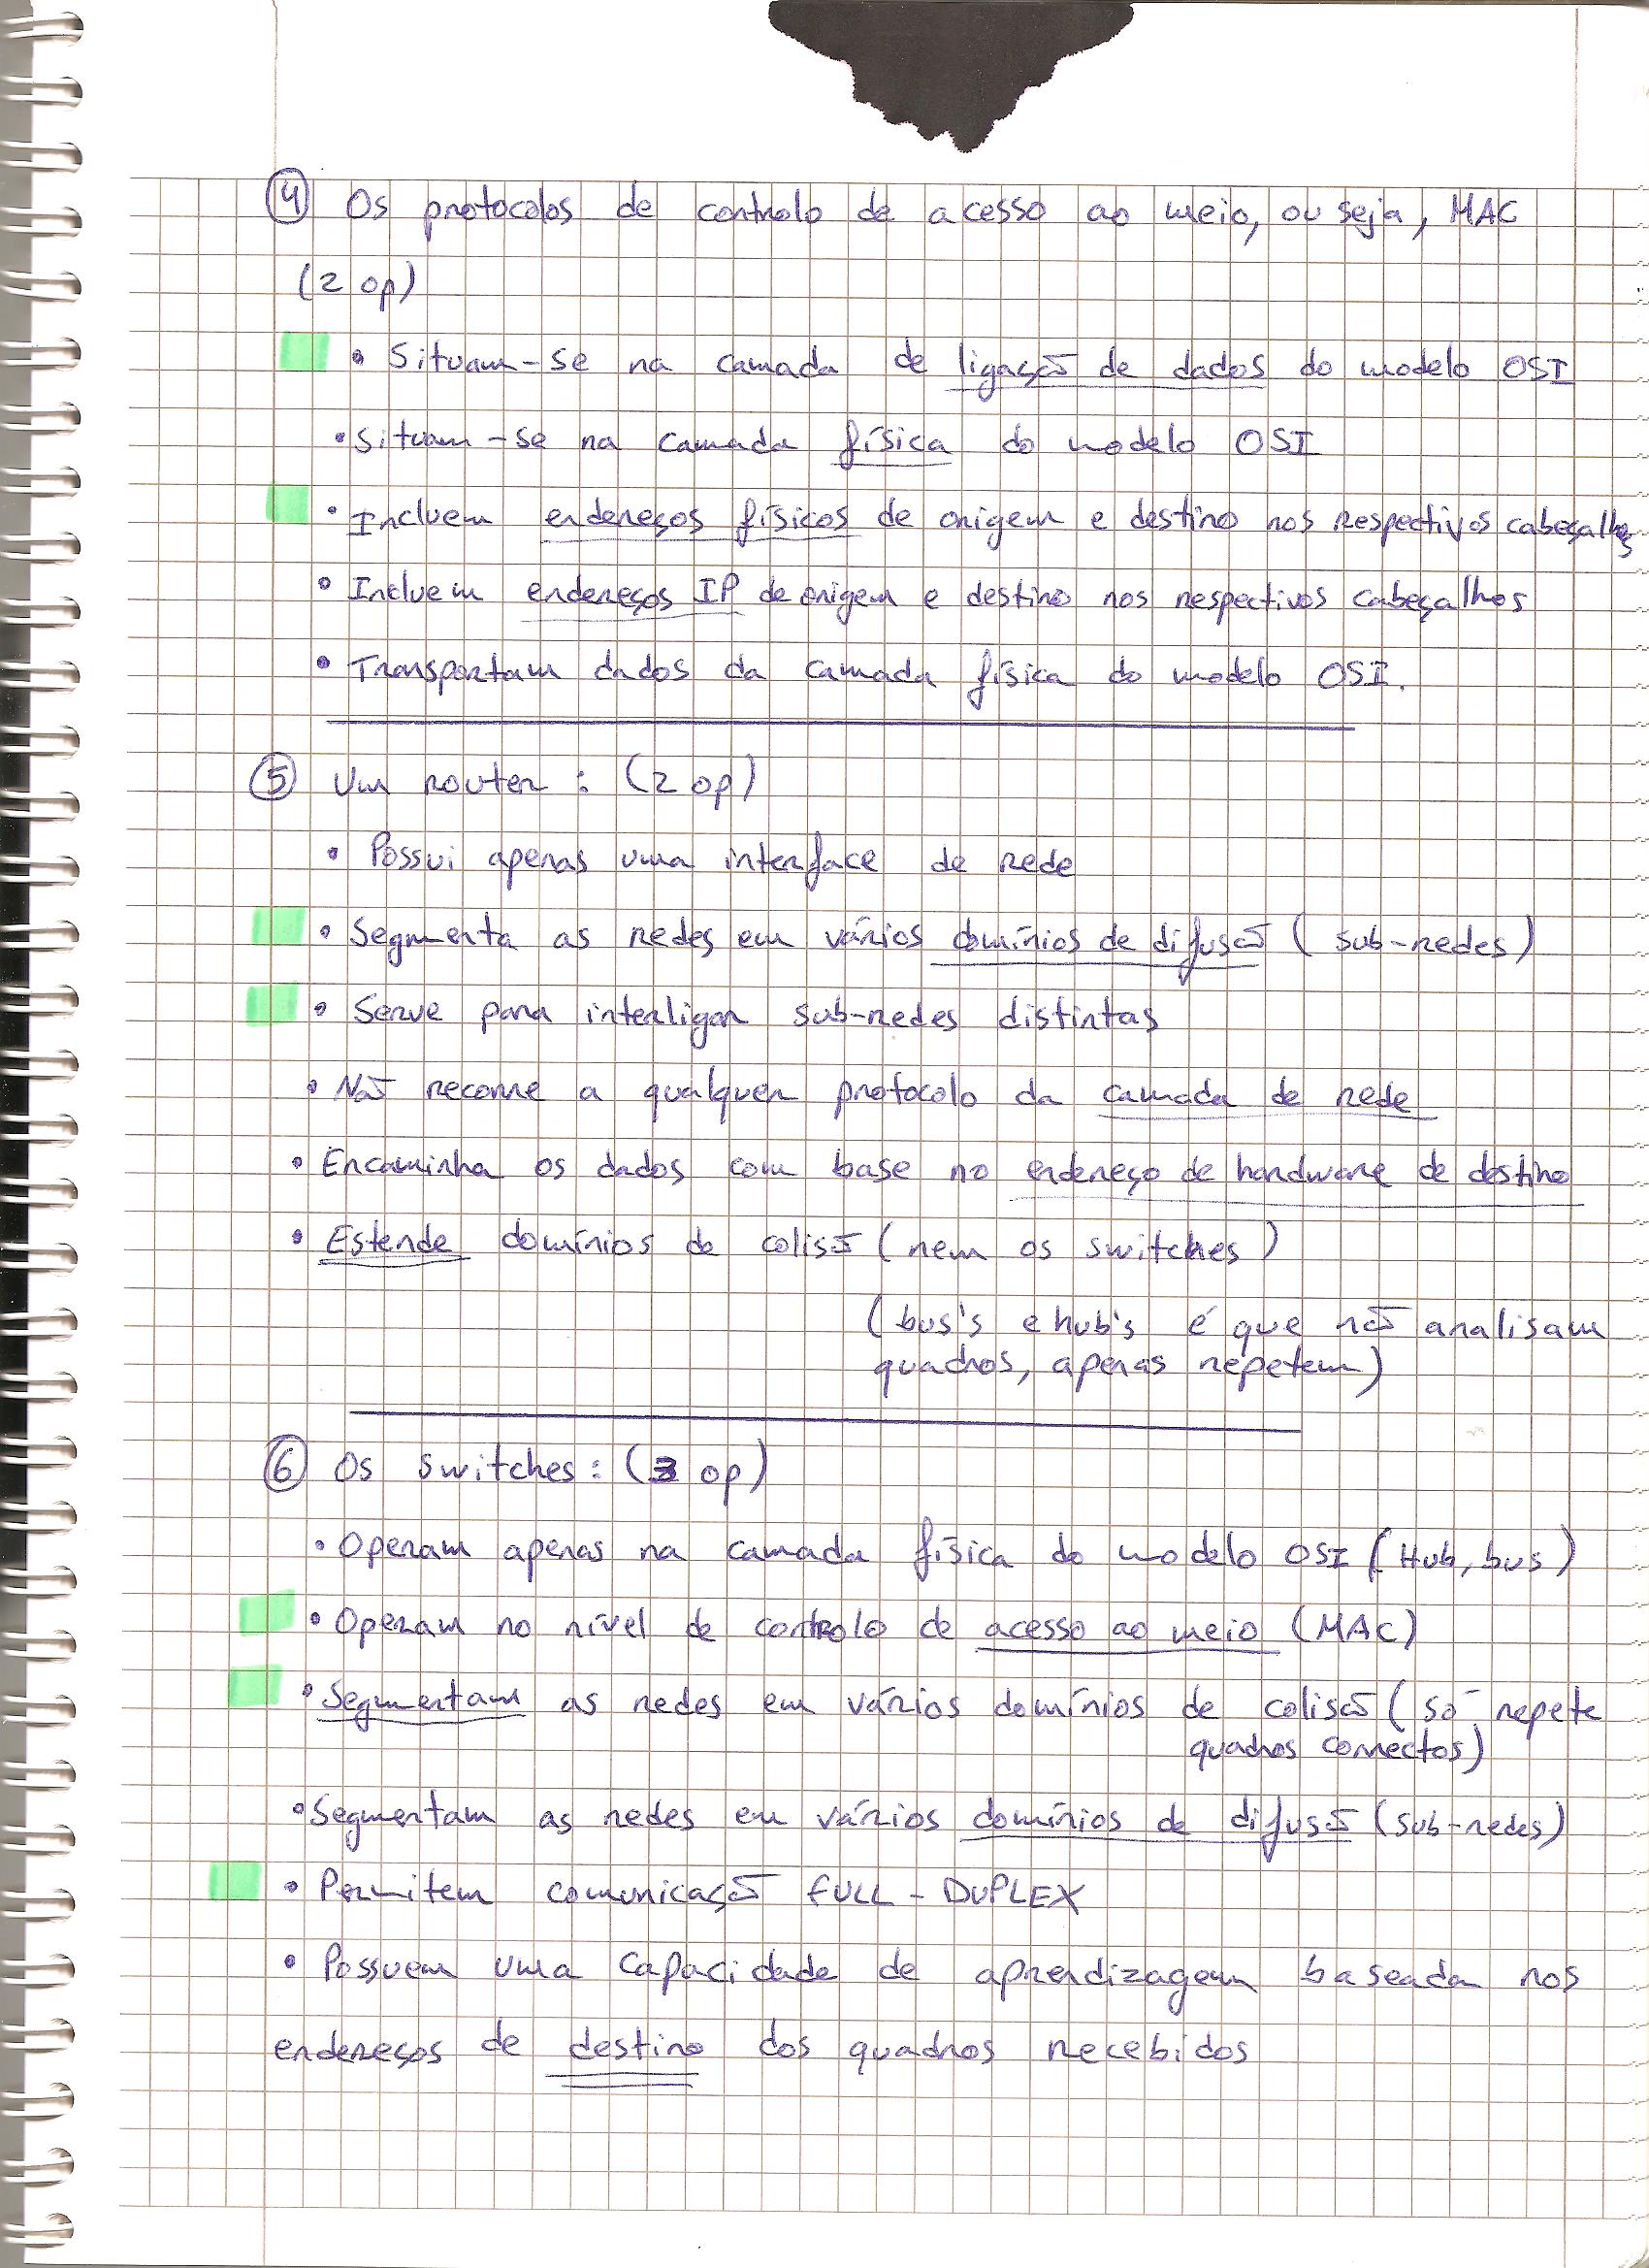 ④ Os protocolos de controlo de acesso ao meio, ou seja, MAC
(2 op)
• Situam-se na camada de ligação de dados do modelo OSI
• Situam-se na camada física do modelo OSI
• Incluem endereços físicos de origem e destino nos respectivos cabeçalhos
• Incluem endereços IP de origem e destino nos respectivos cabeçalhos
• Transportam dados da camada física do modelo OSI.
⑤ Um router: (2 op)
• Possui apenas uma interface de rede
• Segmenta as redes em vários domínios de difusão (sub-redes)
• Serve para interligar sub-redes distintas
• Não recorre a qualquer protocolo da camada de rede
• Encaminha os dados com base no endereço de hardware de destino
• Estende domínios de colisão (nem os switches)
(bus's e hub's é que não analisam
quadros, apenas repetem)
⑥ Os switches: (3 op)
• Operam apenas na camada física do modelo OSI (Hub, bus)
• Operam no nível de controlo de acesso ao meio (MAC)
• Segmentam as redes em vários domínios de colisão (só repete
quadros correctos)
• Segmentam as redes em vários domínios de difusão (sub-redes)
• Permitem comunicação FULL-DUPLEX
• Possuem uma capacidade de aprendizagem baseada nos
endereços de destino dos quadros recebidos